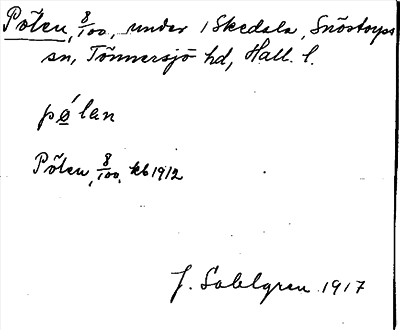 Pölen, 8/100, under 1 Skedala, Snöstorps
sn, Tönnersjö hd, Hall. l.
pø´lan
Pölen, 8/100, kb 1912
J. Sahlgren 1917